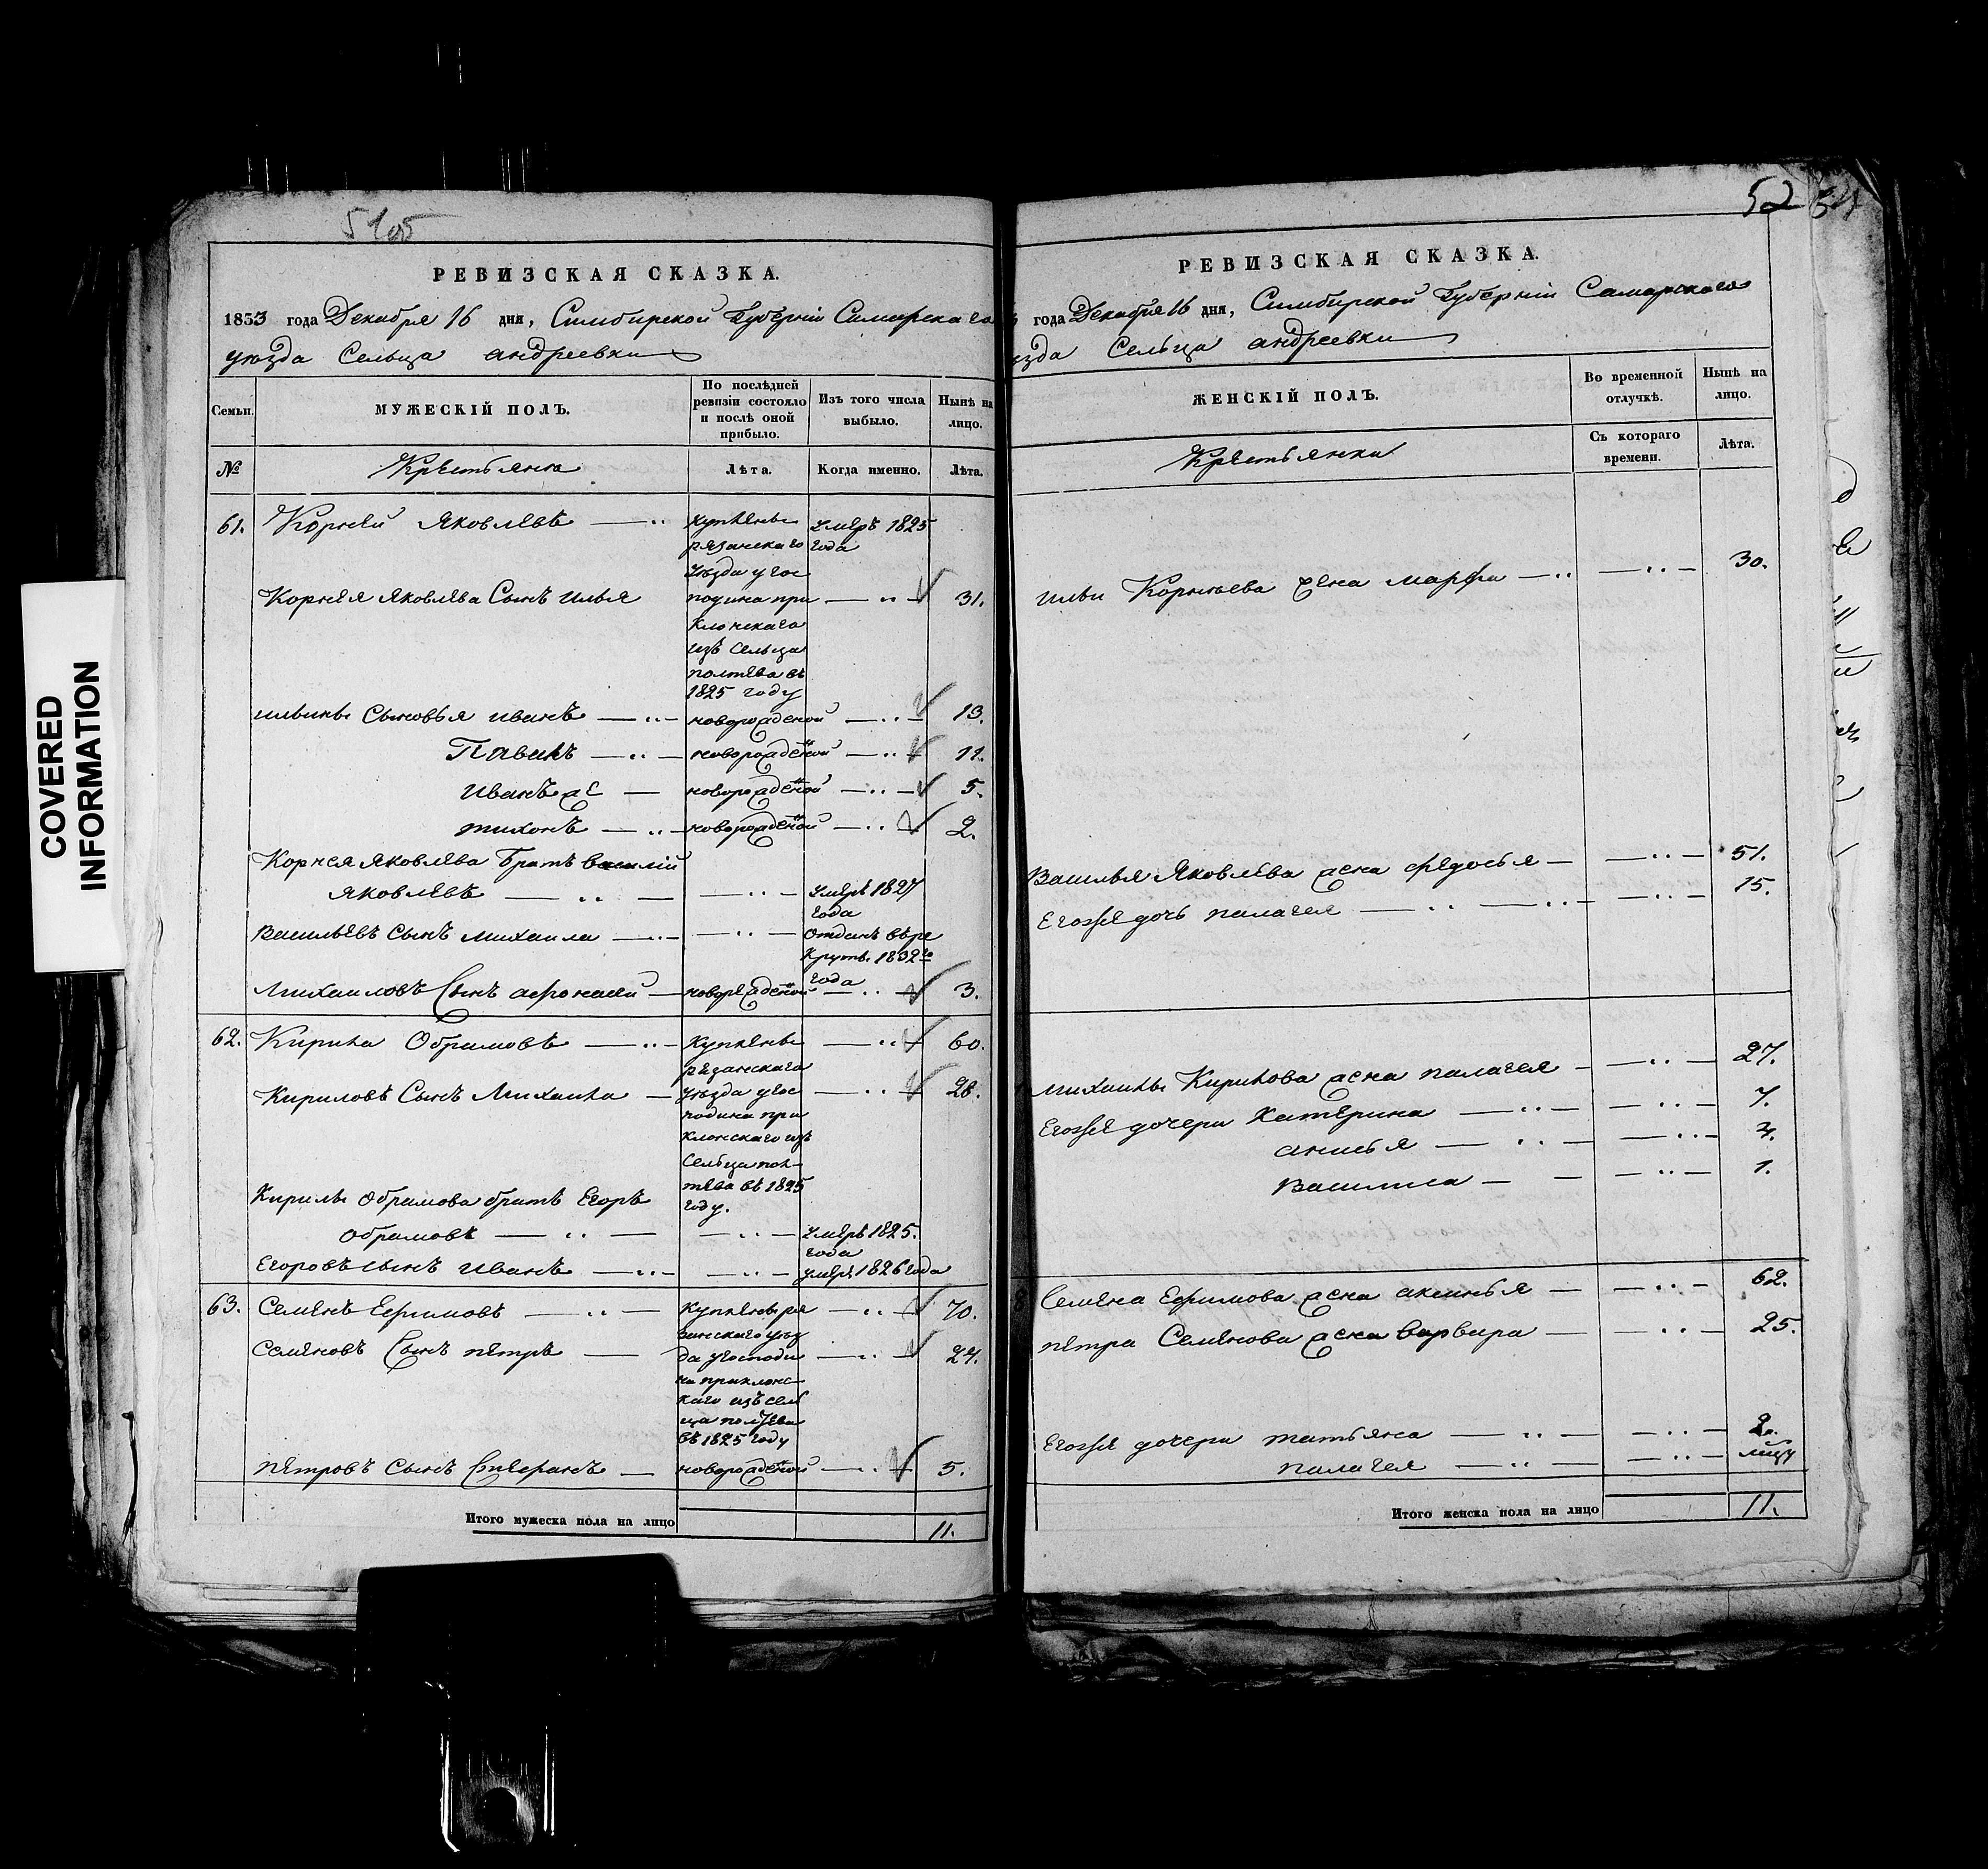 COVERED
INFORMATION
51об
РЕВИЗСКАЯ СКАЗКА.
1833 года Декабря 16 дня, Симбирской Губерніи Самарскаго
уѣзда Сельца андреевки
Семьи.
МУЖЕСКІЙ ПОЛЪ.
По послѣдней
ревизіи состояло
и послѣ оной
прибыло.
Изъ того числа
выбыло.
Нынѣ на
лицо.
№
Крестьяна
Лѣта.
Когда именно.
Лѣта.
61. Корней Яковлевъ — „ купленъ умеръ 1825
рязанскаго года
уѣзда у гос
Корнея Яковлева Сынъ Илья подина при — „ — 31.
клонскаго
изъ Сельца
полтева въ
1825 году
ильины Сыновья иванъ — „ — новорожденой — „ — 13.
Павилъ — „ — новорожденой — „ — 11.
иванъ же — новорожденой — „ — 5.
тихонъ — „ — новорожденой — „ — 2.
Корнея Яковлева Братъ василій
Яковлевъ — „ — — „ — умеръ 1827
года
Васильевъ сынъ михаила — „ — — „ — Отданъ въ ре
круты 1832го
года
михаиловъ Сынъ афонасей — новорожденой — „ — 3.
62. Кирила Обрамовъ — „ — купленъ — „ — 60.
рязанскаго
Кириловъ Сынъ Михаила — уѣзда у гос — „ — 28.
подина при
клонскаго изъ
Сельца пол-
тева въ 1825
году.
Кирилы Обрамова братъ Егоръ
обрамовъ — „ — — „ — умеръ 1825.
года
Егоровъ сынъ Иванъ — „ — — „ — умеръ 1826 года
63. Семенъ Ефимовъ — „ — купленъ ря — „ — 70.
занскаго уѣз
Семеновъ Сынъ петръ — да у господи — „ — 24.
на приклонс-
каго изъ сель
ца полтева
въ 1825 году
петровъ сынъ Стефанъ — новорожденой — „ — 5.
Итого мужеска пола на лицо 11.
52
РЕВИЗСКАЯ СКАЗКА.
года Декабря 16 дня, Симбирской Губерніи Самарскаго
ѣзда Сельца андреевки
ЖЕНСКІЙ ПОЛЪ.
Во временной
отлучкѣ.
Нынѣ на
лицо.
Крестьянки
Съ котораго
времени.
Лѣта.
ильи Корнѣева жена марфа — „ — „ — 30.
Василья Яковлева жена федосья — — „ — 51.
Егоже дочь палагея — „ — „ — — „ — 15.
михаилы Кирилова жена палагея — — „ — 27.
Егоже дочери Катерина — „ — — „ — 7.
анисья — „ — — „ — 4.
Василиса — — — „ — 1.
Семена Ефимова жена аксинья — — „ — 62.
петра Семенова жена варвара — — „ — 25.
Егоже дочери татьяна — „ — — „ — 2.
палагея — „ — — „ —
Итого женска пола на лицо 11.